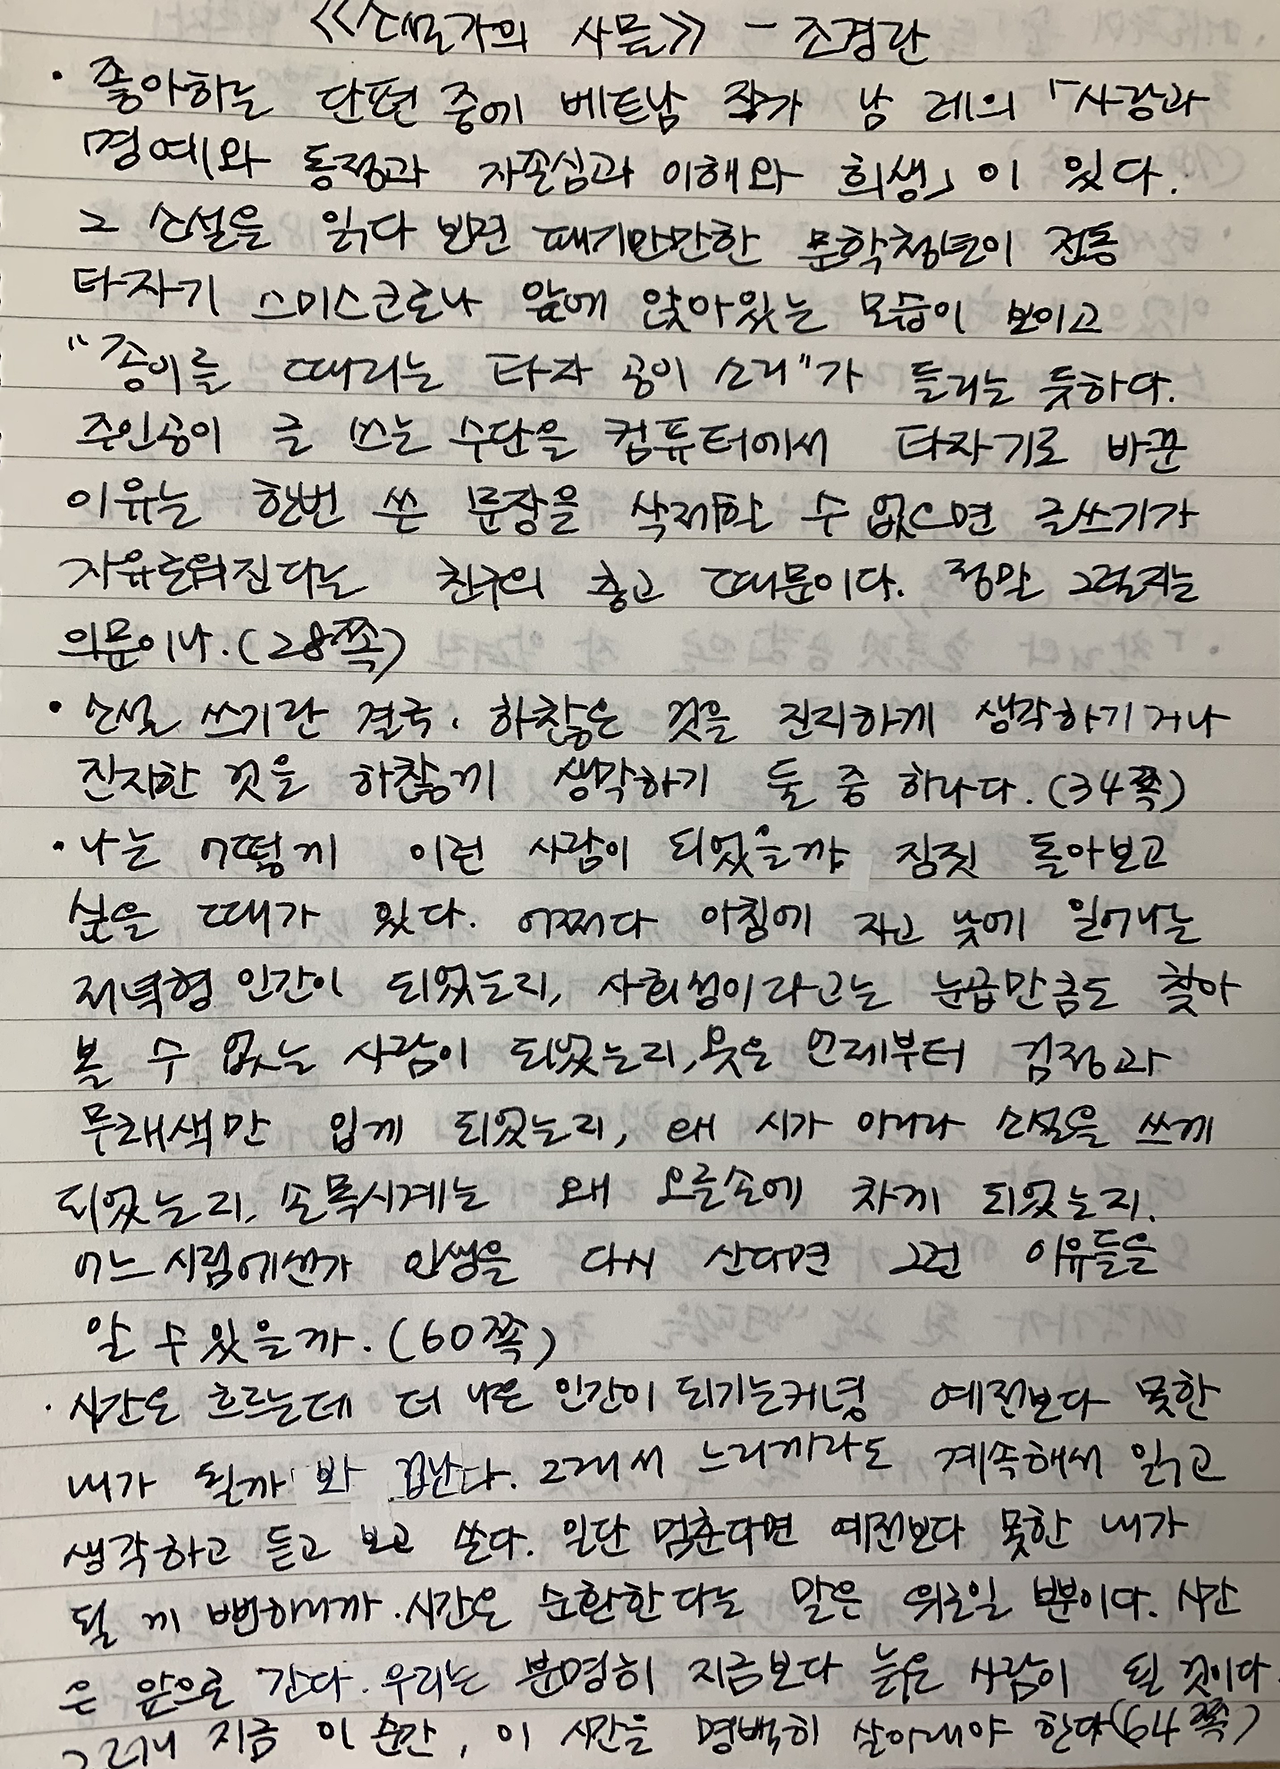 《소설가의 사물》 - 조경란
· 좋아하는 단편 중에 베트남 작가 남 레의 「사랑과
명예와 동정과 자존심과 이해와 희생」이 있다.
그 소설을 읽다 보면 패기만만한 문학청년이 전동
타자기 스미스코로나 앞에 앉아있는 모습이 보이고
"종이를 때리는 타자 공이 소리"가 들리는 듯하다.
주인공이 글 쓰는 수단을 컴퓨터에서 타자기로 바꾼
이유는 한번 쓴 문장을 삭제할 수 없으면 글쓰기가
자유로워진다는 친구의 충고 때문이다. 정말 그럴지는
의문이나.(28쪽)
· 소설 쓰기란 결국, 하찮은 것을 진지하게 생각하기거나
진지한 것을 하찮게 생각하기 둘 중 하나다.(34쪽)
· 나는 어떻게 이런 사람이 되었을까 짐짓 돌아보고
싶을 때가 있다. 어쩌다 아침에 자고 낮에 일어나는
저녁형 인간이 되었는지, 사회성이라고는 눈곱만큼도 찾아
볼 수 없는 사람이 되었는지, 옷은 언제부터 검정과
무채색만 입게 되었는지, 왜 시가 아니라 소설을 쓰게
되었는지, 손목시계는 왜 오른손에 차게 되었는지.
어느 시점에선가 인생을 다시 산다면 그런 이유들을
알 수 있을까.(60쪽)
· 시간은 흐르는데 더 나은 인간이 되기는커녕 예전보다 못한
내가 될까 봐 겁난다. 그래서 느리게라도 계속해서 읽고
생각하고 듣고 보고 쓴다. 일단 멈춘다면 예전보다 못한 내가
될 게 뻔하니까. 시간은 순환한다는 말은 위로일 뿐이다. 시간
은 앞으로 간다. 우리는 분명히 지금보다 늙은 사람이 될 것이다.
그러니 지금 이 순간, 이 시간을 명백히 살아내야 한다(64쪽)